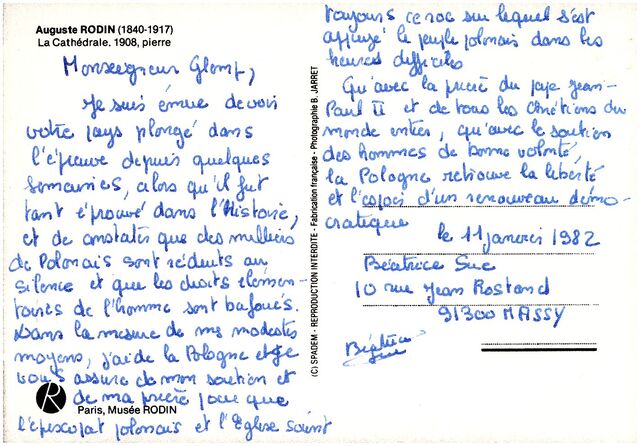 Auguste RODIN (1840-1917)
La Cathédrale. 1908, pierre
Monseigneur Glemp,
Je suis émue de voir
votre pays plongé dans
l'épreuve depuis quelques
semaines, alors qu'il fut
tant éprouvé dans l'Histoire,
et de constater que des milliers
de Polonais sont réduits au
silence et que les droits élémen-
taires de l'homme sont bafoués.
Dans la mesure de mes modestes
moyens, j'aide la Pologne et je
vous assure de mon soutien et
de ma prière pour que
l'épiscopat polonais et l'Eglise soient
R
Paris, Musée RODIN
(C) SPADEM - REPRODUCTION INTERDITE - Fabrication française - Photographie B. JARRET
toujours ce roc sur lequel s'est
appuyé le peuple polonais dans les
heures difficiles
Qu'avec la prière du pape Jean-
Paul II et de tous les chrétiens du
monde entier, qu'avec le soutien
des hommes de bonne volonté,
la Pologne retrouve la liberté
et l'espoir d'un renouveau démo-
cratique
le 11 janvier 1982
Béatrice Suc
10 rue Jean Rostand
91300 MASSY
Béatrice